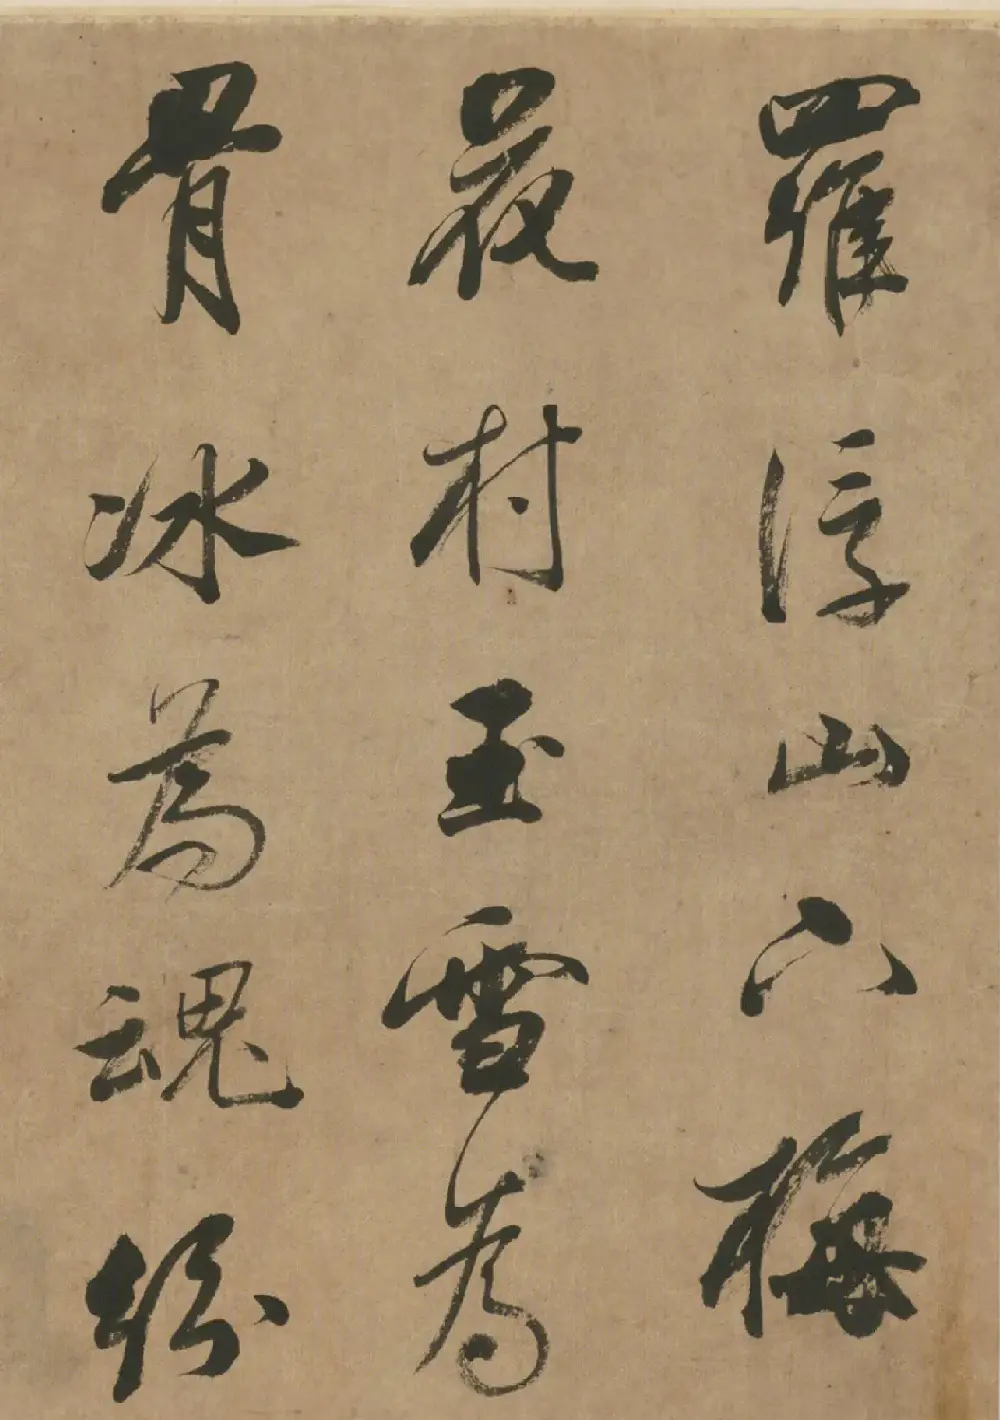 羅浮山下梅
花村玉雪為
骨冰為魂紛